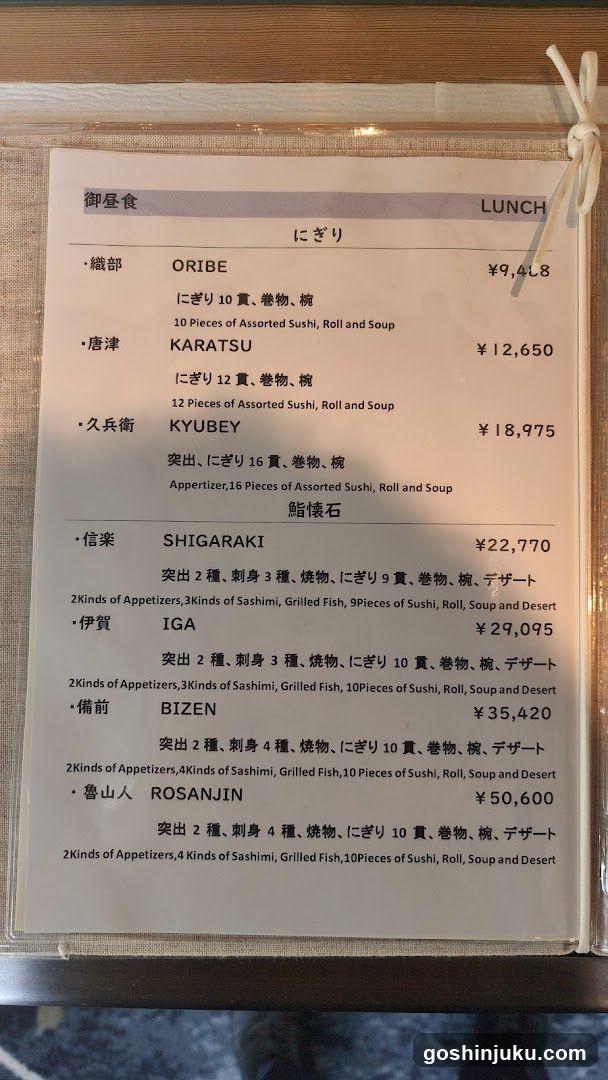 御昼食 LUNCH
にぎり
・織部 ORIBE ¥9,488
にぎり 10 貫、巻物、椀
10 Pieces of Assorted Sushi, Roll and Soup
・唐津 KARATSU ¥12,650
にぎり 12 貫、巻物、椀
12 Pieces of Assorted Sushi, Roll and Soup
・久兵衛 KYUBEY ¥18,975
突出、にぎり 16 貫、巻物、椀
Appertizer,16 Pieces of Assorted Sushi, Roll and Soup
鮨懐石
・信楽 SHIGARAKI ¥22,770
突出 2 種、刺身 3 種、焼物、にぎり 9 貫、巻物、椀、デザート
2Kinds of Appetizers,3Kinds of Sashimi, Grilled Fish, 9Pieces of Sushi, Roll, Soup and Desert
・伊賀 IGA ¥29,095
突出 2 種、刺身 3 種、焼物、にぎり 10 貫、巻物、椀、デザート
2Kinds of Appetizers,3Kinds of Sashimi, Grilled Fish, 10Pieces of Sushi, Roll, Soup and Desert
・備前 BIZEN ¥35,420
突出 2 種、刺身 4 種、焼物、にぎり 10 貫、巻物、椀、デザート
2Kinds of Appetizers,4Kinds of Sashimi, Grilled Fish,10 Pieces of Sushi, Roll, Soup and Desert
・魯山人 ROSANJIN ¥50,600
突出 2 種、刺身 4 種、焼物、にぎり 10 貫、巻物、椀、デザート
2Kinds of Appetizers,4 Kinds of Sashimi, Grilled Fish,10Pieces of Sushi, Roll, Soup and Desert
goshinjuku.com